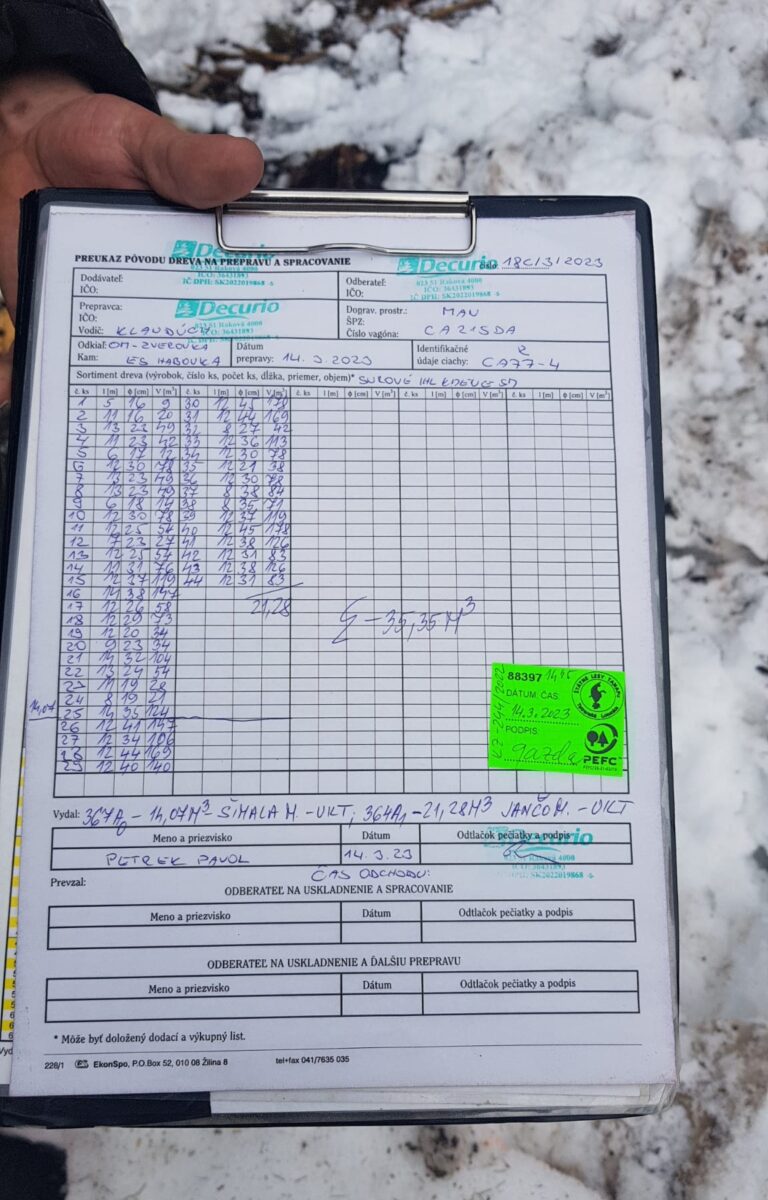 PREUKAZ PÔVODU DREVA NA PREPRAVU A SPRACOVANIE
Decurio
023 51 Raková 4000
IČO: 36431893
IČ DPH: SK2022019868 -5-
Decurio
IČO: 36431893
IČ DPH: SK2022019868 -5-
číslo: 18C/3/2023
Dodávateľ:
IČO:
Odberateľ:
IČO:
Prepravca:
IČO:
Vodič:
Decurio
023 51 Raková 4000
IČO: 36431893
Doprav. prostr.: MAN
ŠPZ:
Číslo vagóna: CA215DA
Odkiaľ: OM-ZVEROVKA
Kam: ES HABOVKA
Dátum
prepravy: 14.3.2023
Identifikačné
údaje ciachy: CA77-4
Sortiment dreva (výrobok, číslo ks, počet ks, dĺžka, priemer, objem)*
č. ks l [m] ϕ [cm] V [m³] č. ks l [m] ϕ [cm] V [m³] č. ks l [m] ϕ [cm] V [m³] č. ks l [m] ϕ [cm] V [m³] č. ks l [m] ϕ [cm] V [m³]
1 5 16 9 30 12 45 178
2 11 16 20 31 12 44 169
3 13 23 49 32 8 27 42
4 11 23 42 33 12 36 113
5 6 17 12 34 12 30 78
6 12 30 78 35 12 21 38
7 13 23 49 36 12 30 78
8 13 23 49 37 8 38 84
9 6 18 14 38 8 35 71
10 12 30 78 39 12 37 119
11 12 25 54 40 12 45 178
12 7 23 27 41 12 38 126
13 12 25 54 42 12 31 83
14 11 31 76 43 12 38 126
15 12 37 119 44 12 31 83
16 14 38 147
17 12 26 58 21,28
18 12 29 73 Σ - 35,35 M³
19 12 20 34
20 9 23 34
21 14 32 104
22 13 24 54
23 11 19 28
24 8 19 21
14,07 25 14 35 124
26 12 41 147
27 12 34 106
28 12 44 169
29 12 40 140
88397 14 45
DÁTUM ČAS:
14.3.2023
PODPIS:
gazda
ŠTÁTNE LESY TANAPu
PEFC
Vydal: 367A0 - 14,07M³ ŠIMALA M. - VKT; 364A1 - 21,28M3 JANČO M. - VKT
Meno a priezvisko Dátum Odtlačok pečiatky a podpis
PETREK PAVOL 14.3.23
Decurio
IČ DPH: SK2022019868 -5-
Prevzal: ČAS ODCHODU:
ODBERATEĽ NA USKLADNENIE A SPRACOVANIE
Meno a priezvisko Dátum Odtlačok pečiatky a podpis
ODBERATEĽ NA USKLADNENIE A ĎALŠIU PREPRAVU
Meno a priezvisko Dátum Odtlačok pečiatky a podpis
* Môže byť doložený dodací a výkupný list.
226/1 EkonSpo, P.O.Box 52, 010 08 Žilina 8 tel+fax 041/7635 035